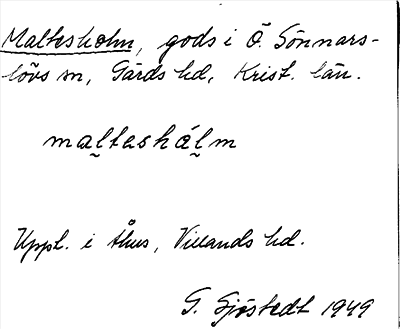 Maltesholm, gods i Ö. Sönnars-
lövs sn, Gärds hd, Krist. län.
mal̰teshál̰m
Uppt. i Åhus, Villands hd.
G. Sjöstedt 1949